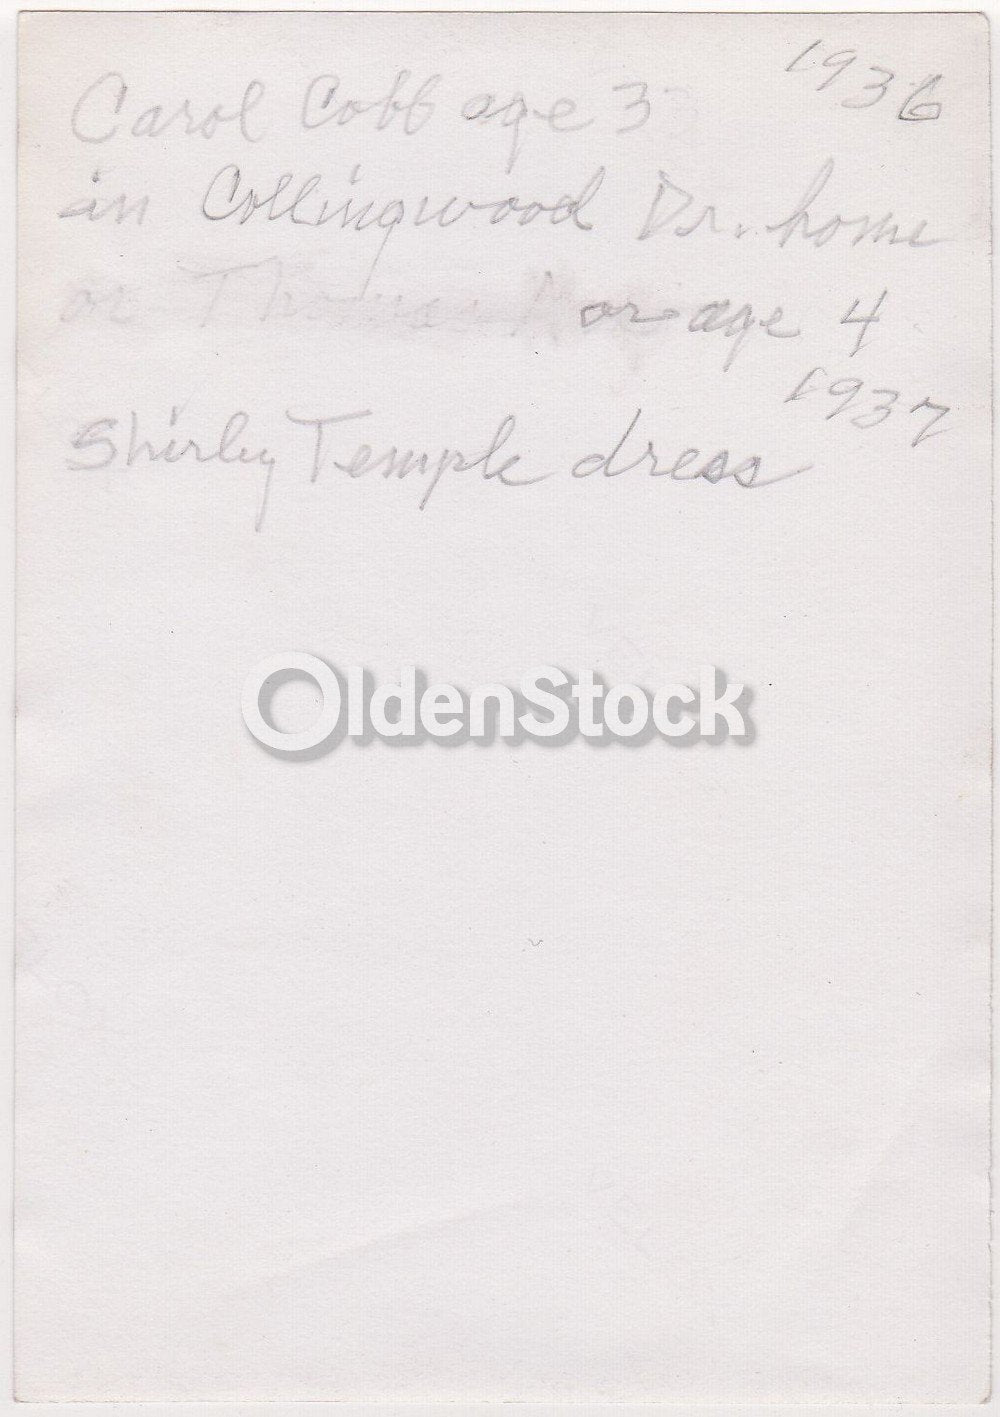 1936
Carol Cobb age 3
in Collingwood Dr. home
or Thomas or age 4
1937
Shirley Temple dress
OldenStock